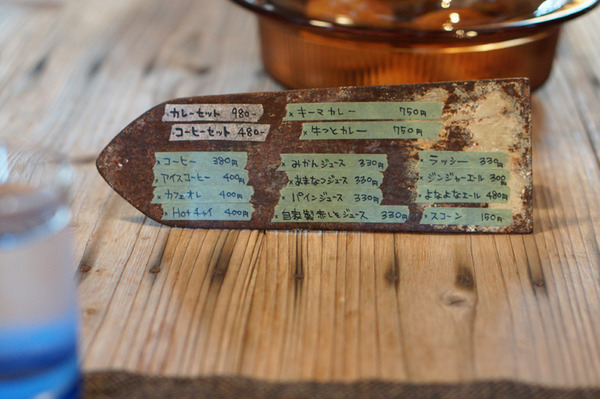 カレーセット 980-
コーヒーセット 480-
× キーマカレー 750円
× 牛つとカレー 750円
× コーヒー 380円
アイスコーヒー 400円
× カフェオレ 400円
× Hotチャイ 400円
× みかんジュース 330円
× あまなつジュース 330円
× パインジュース 330円
× 自家製赤しそジュース 330円
× ラッシー 330円
× ジンジャーエール 300円
× よなよなエール 480円
× スコーン 150円